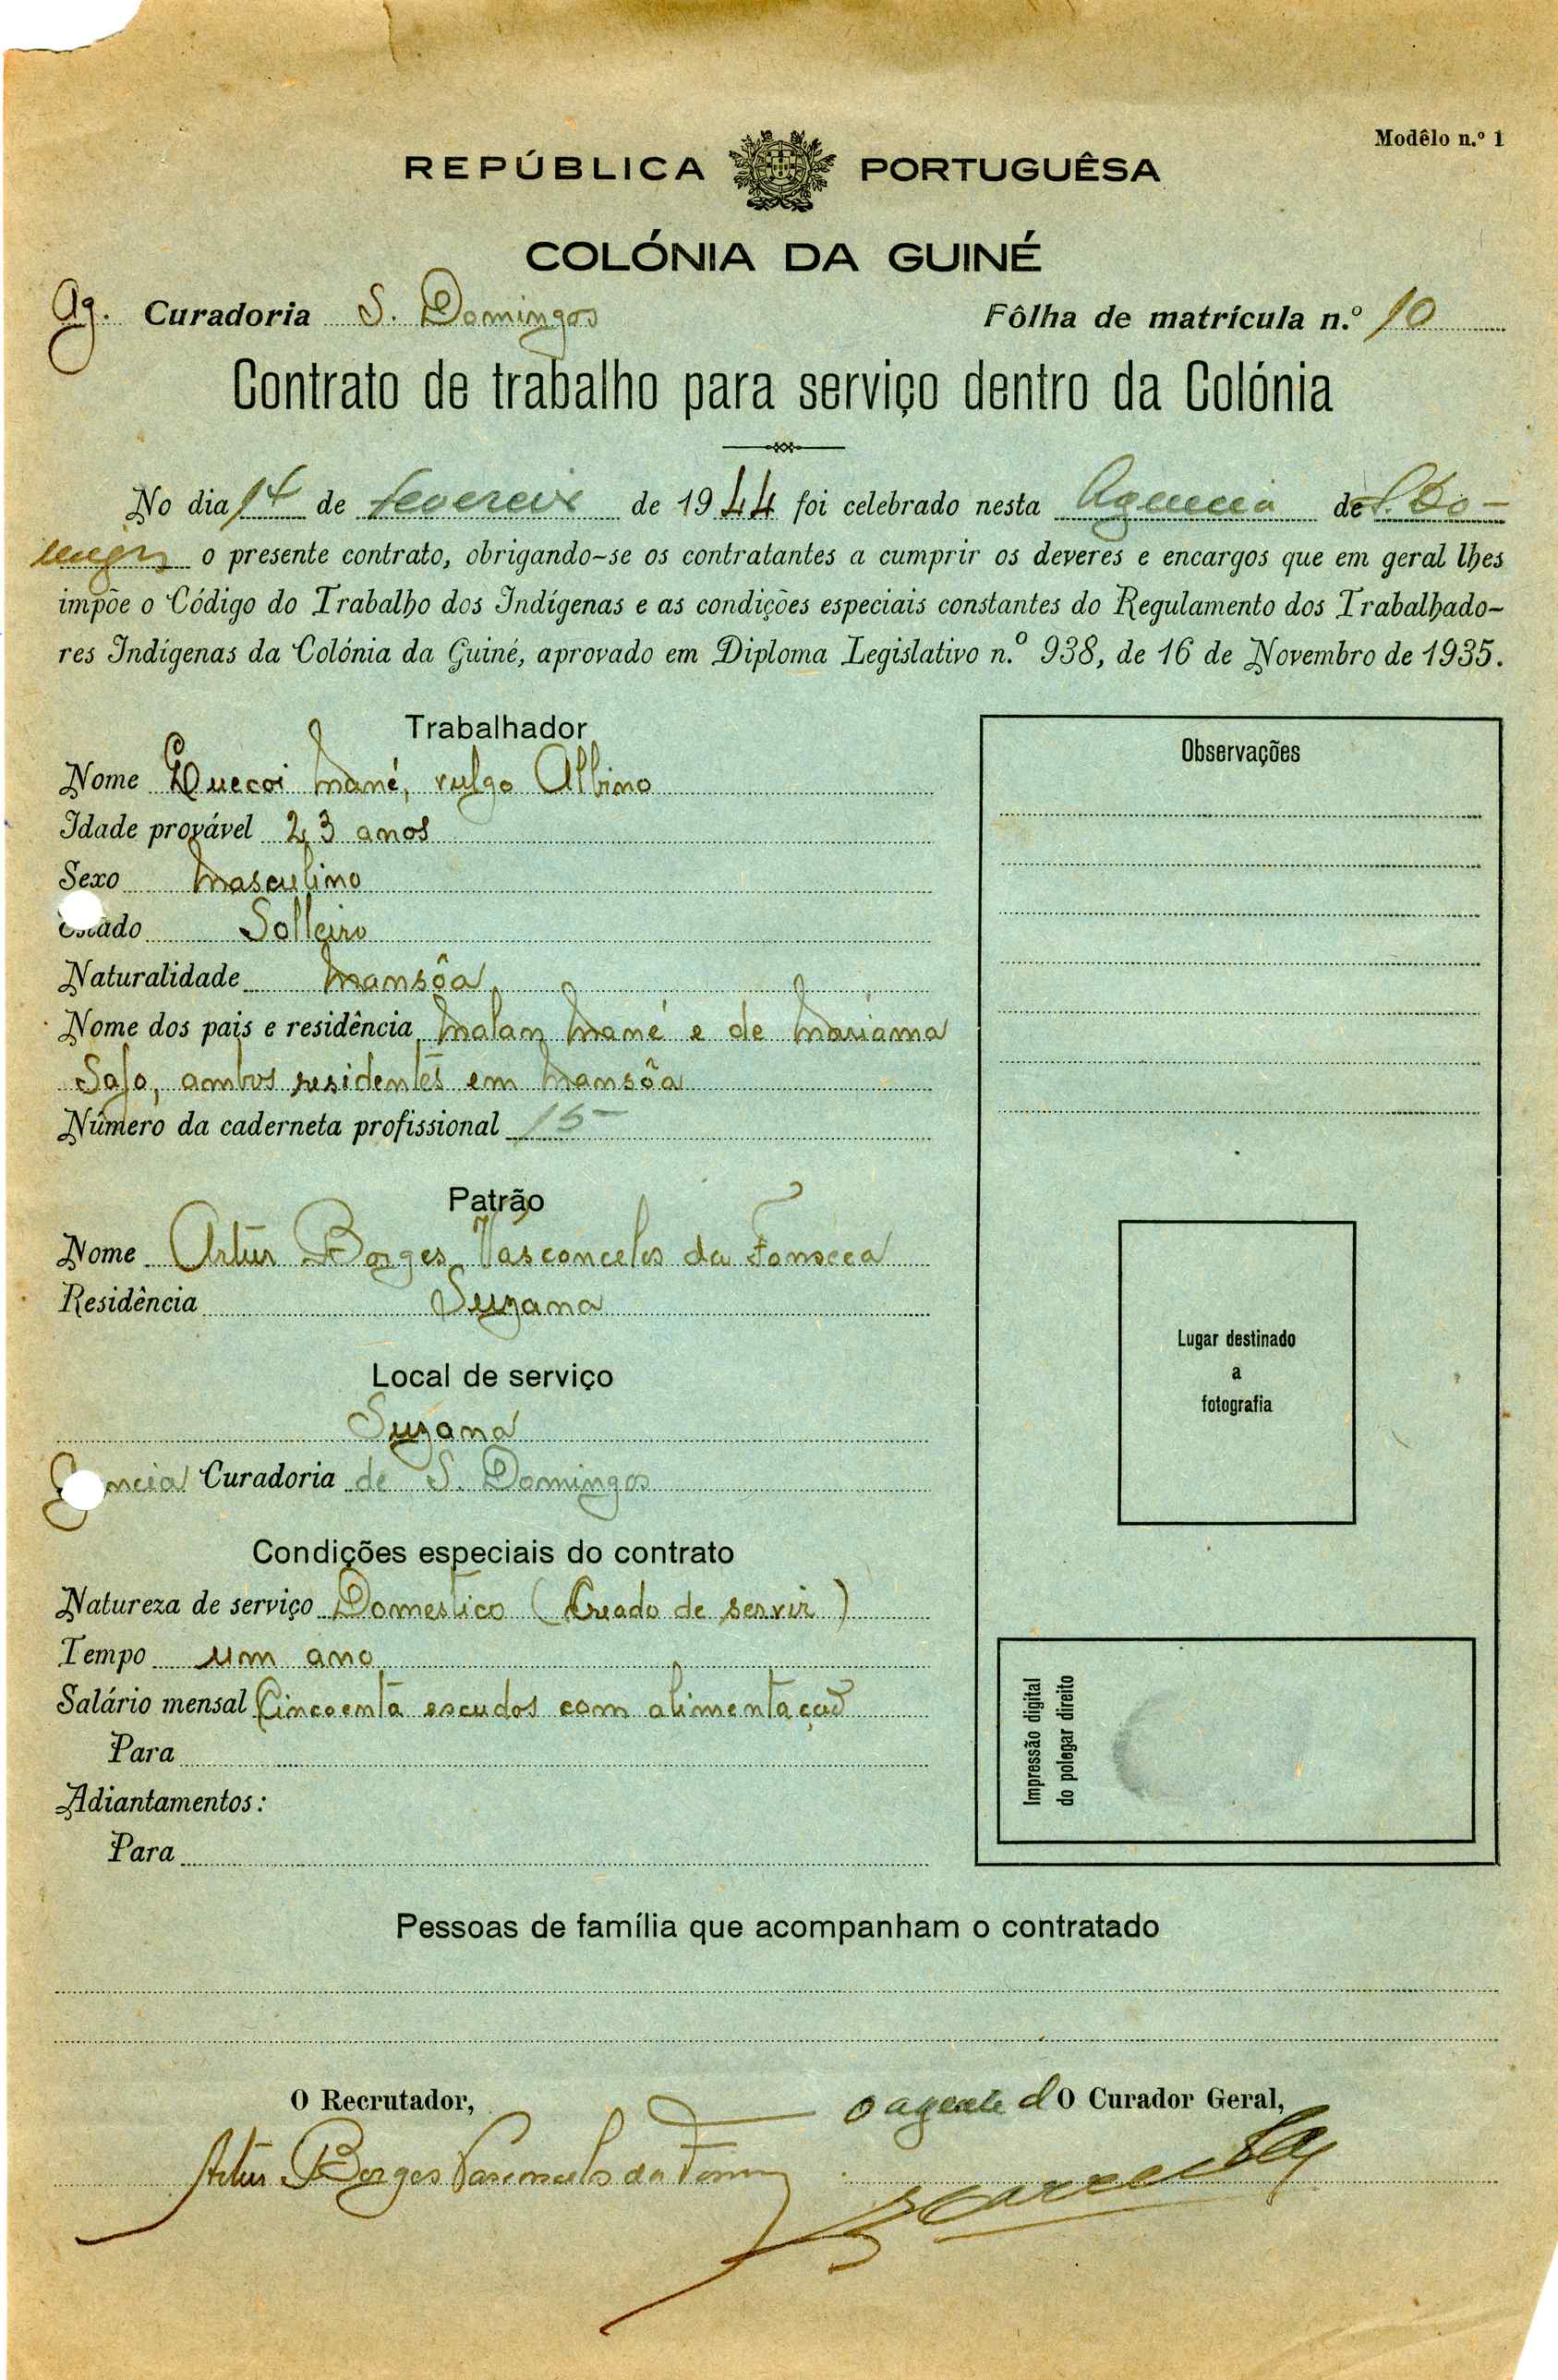 Modêlo n.º 1
REPÚBLICA PORTUGUÊSA
COLÓNIA DA GUINÉ
Ag. Curadoria S. Domingos Fôlha de matrícula n.º 10
Contrato de trabalho para serviço dentro da Colónia
No dia 14 de fevereiro de 1944 foi celebrado nesta Agencia de S. Do-
mingos o presente contrato, obrigando-se os contratantes a cumprir os deveres e encargos que em geral lhes
impõe o Código do Trabalho dos Indígenas e as condições especiais constantes do Regulamento dos Trabalhado-
res Indígenas da Colónia da Guiné, aprovado em Diploma Legislativo n.º 938, de 16 de Novembro de 1935.
Trabalhador
Nome Quecoi Mané, vulgo Albino
Idade provável 23 anos
Sexo Masculino
Estado Solteiro
Naturalidade Mansôa
Nome dos pais e residência Malan Mané e de Mariama
Sajo, ambos residentes em Mansôa
Número da caderneta profissional 15
Patrão
Nome Artur Borges Vasconcelos da Fonseca
Residência Suzana
Local de serviço
Suzana
Curadoria de S. Domingos
Condições especiais do contrato
Natureza de serviço Domestico (Creado de servir)
Tempo um ano
Salário mensal Cincoenta escudos com alimentação
Para
Adiantamentos:
Para
Observações
Lugar destinado
a
fotografia
Impressão digital
do polegar direito
Pessoas de família que acompanham o contratado
O Recrutador,
o agente d O Curador Geral,
Artur Borges Vasconcelos da